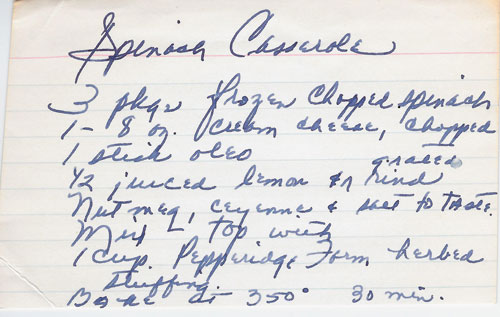 Spinach Casserole
3 pkgs frozen chopped spinach
1 - 8 oz. cream cheese, chopped
1 stick oleo
grated
1/2 juiced lemon & rind
Nutmeg, ceyenne & salt to taste
Mix - top with
1 cup Pepperidge Farm herbed
stuffing.
Bake at 350° 30 min.